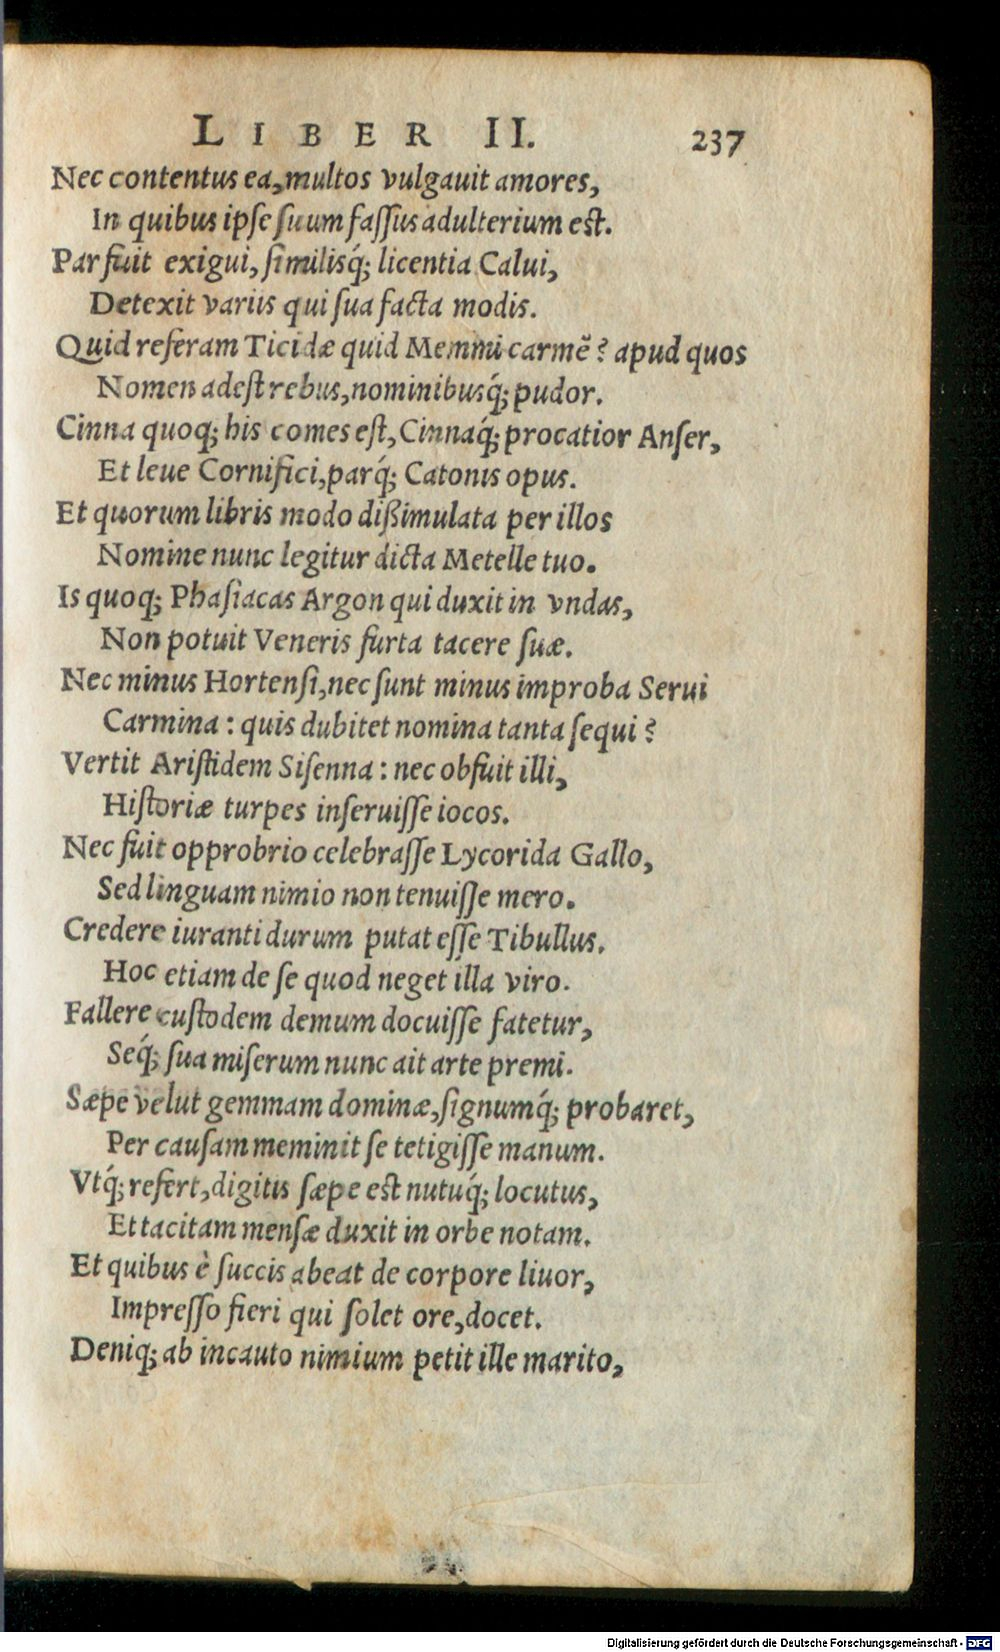 LIBER II. 237
Nec contentus ea, multos vulgauit amores,
In quibus ipse suum fassus adulterium est.
Par fuit exigui, similisq́; licentia Calui,
Detexit variis qui sua facta modis.
Quid referam Ticidæ quid Memmi carmẽ? apud quos
Nomen adest rebus, nominibusq́; pudor.
Cinna quoq; his comes est, Cinnaq́; procatior Anser,
Et leue Cornifici, parq́; Catonis opus.
Et quorum libris modo dißimulata per illos
Nomine nunc legitur dicta Metelle tuo.
Is quoq; Phasiacas Argon qui duxit in vndas,
Non potuit Veneris furta tacere suæ.
Nec minus Hortensi, nec sunt minus improba Serui
Carmina: quis dubitet nomina tanta sequi?
Vertit Aristidem Sisenna: nec obfuit illi,
Historiæ turpes inseruisse iocos.
Nec fuit opprobrio celebrasse Lycorida Gallo,
Sed linguam nimio non tenuisse mero.
Credere iuranti durum putat esse Tibullus.
Hoc etiam de se quod neget illa viro.
Fallere custodem demum docuisse fatetur,
Seq́; sua miserum nunc ait arte premi.
Sæpe velut gemmam dominæ, signumq́; probaret,
Per causam meminit se tetigisse manum.
Vtq́; refert, digitis sæpe est nutuq́; locutus,
Et tacitam mensæ duxit in orbe notam.
Et quibus è succis abeat de corpore liuor,
Impresso fieri qui solet ore, docet.
Deniq; ab incauto nimium petit ille marito,
Digitalisierung gefördert durch die Deutsche Forschungsgemeinschaft - DFG